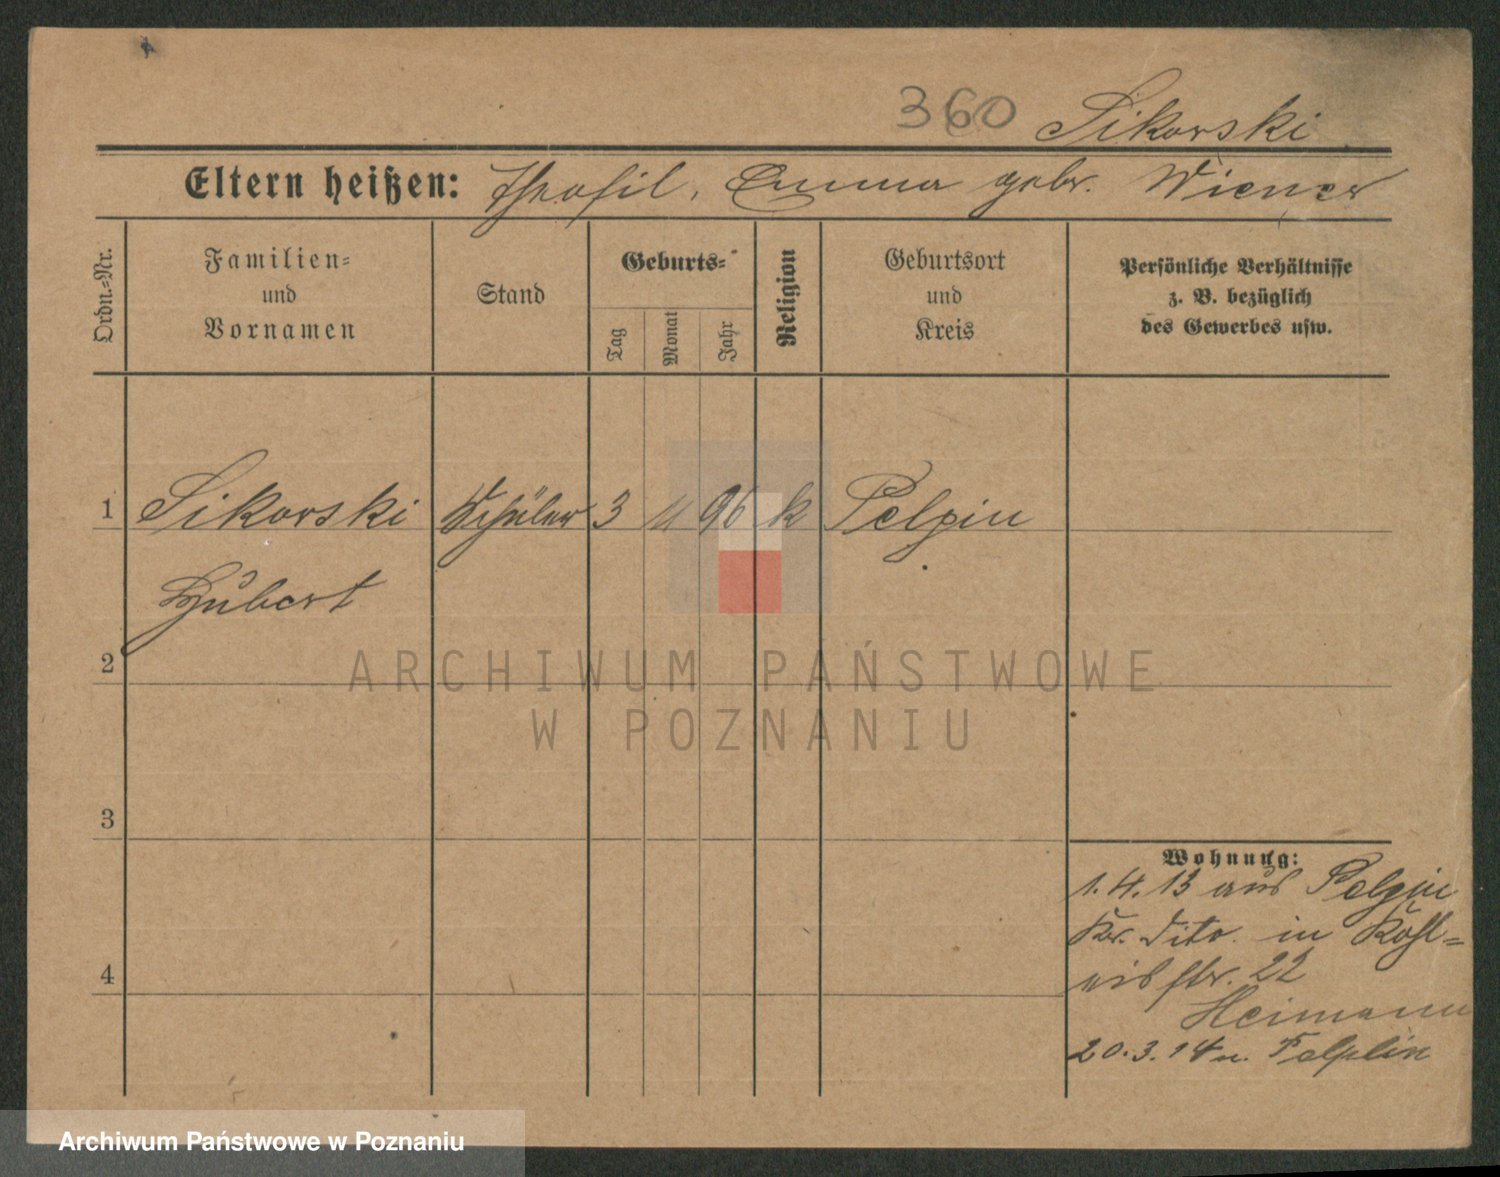 360 Sikorski
Eltern heißen: Theofil, Emma gebr. Wiener
Ordn.-Nr.
Familien-
und
Vornamen
Stand
Geburts-
Tag
Monat
Jahr
Religion
Geburtsort
und
Kreis
Persönliche Verhältnisse
z. B. bezüglich
des Gewerbes usw.
1 Sikorski Schüler 3 11 96 k Pelpin
Hubert
2
3
4
Wohnung:
1.4.13 aus Pelpin
Kr. dito. in Kohl=
eisstr. 22
Heimann
20.3.14 n. Pelplin
ARCHIWUM PAŃSTWOWE
W POZNANIU
Archiwum Państwowe w Poznaniu